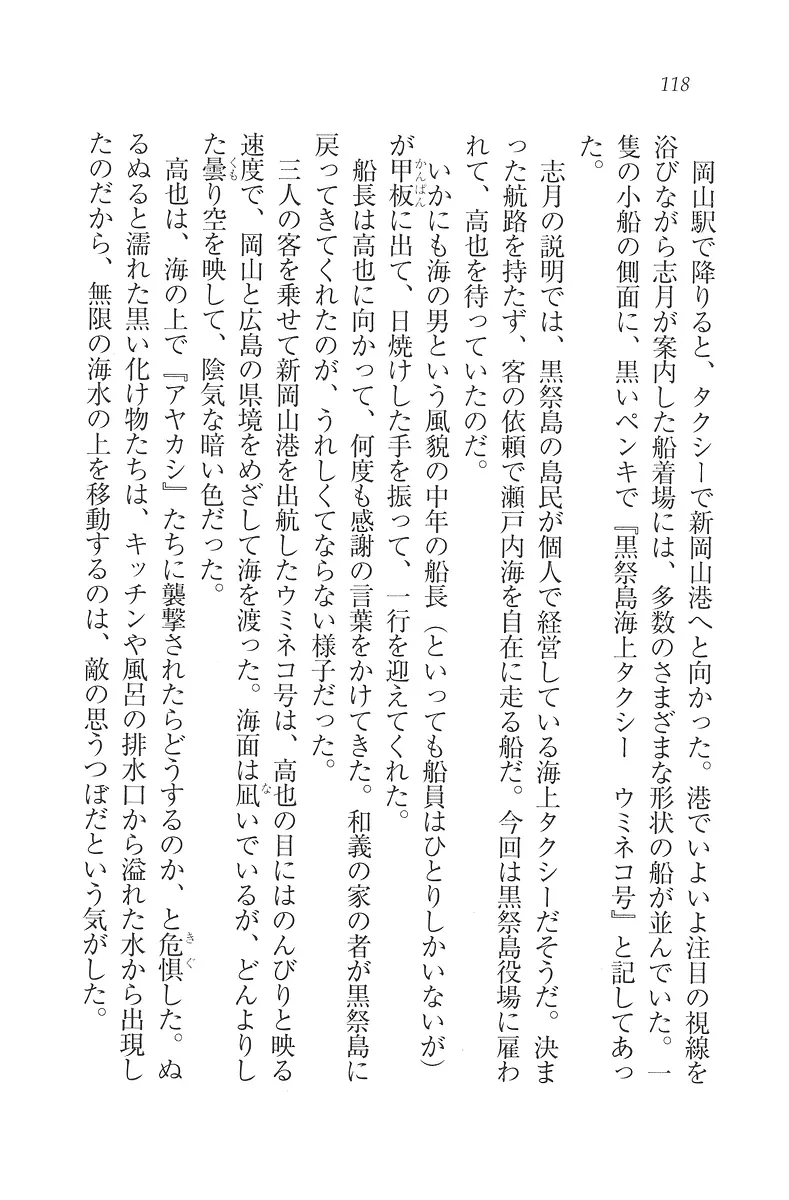 118
岡山駅で降りると、タクシーで新岡山港へと向かった。港でいよいよ注目の視線を
浴びながら志月が案内した船着場には、多数のさまざまな形状の船が並んでいた。一
隻の小船の側面に、黒いペンキで『黒祭島海上タクシー　ウミネコ号』と記してあっ
た。
志月の説明では、黒祭島の島民が個人で経営している海上タクシーだそうだ。決ま
った航路を持たず、客の依頼で瀬戸内海を自在に走る船だ。今回は黒祭島役場に雇わ
れて、高也を待っていたのだ。
いかにも海の男という風貌の中年の船長（といっても船員はひとりしかいないが）
が甲板かんぱんに出て、日焼けした手を振って、一行を迎えてくれた。
船長は高也に向かって、何度も感謝の言葉をかけてきた。和義の家の者が黒祭島に
戻ってきてくれたのが、うれしくてならない様子だった。
三人の客を乗せて新岡山港を出航したウミネコ号は、高也の目にはのんびりと映る
速度で、岡山と広島の県境をめざして海を渡った。海面は凪ないでいるが、どんよりし
た曇くもり空を映して、陰気な暗い色だった。
高也は、海の上で『アヤカシ』たちに襲撃されたらどうするのか、と危惧きぐした。ぬ
るぬると濡れた黒い化け物たちは、キッチンや風呂の排水口から溢れた水から出現し
たのだから、無限の海水の上を移動するのは、敵の思うつぼだという気がした。